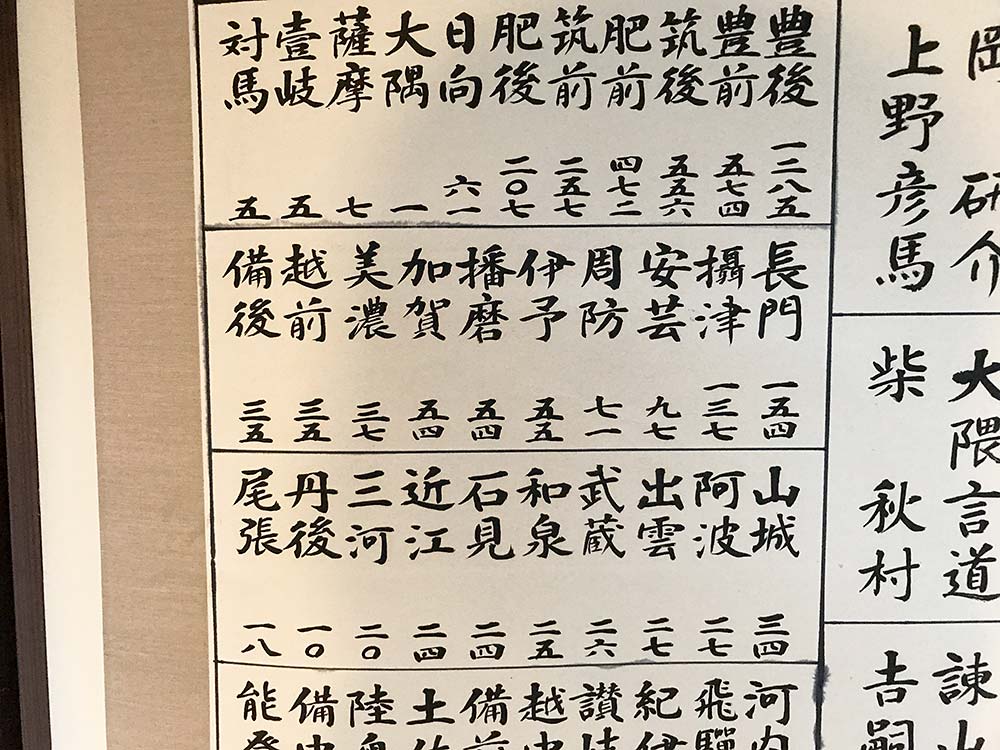 岡研介
上野彦馬
大隈言道
柴秋村
諌山
吉嗣
豊後 一二八五
豊前 五七四
筑後 五五六
肥前 四七二
筑前 二五七
肥後 二〇七
日向 六一
大隅 一
薩摩 七
壹岐 五
対馬 五
長門 一五四
攝津 一三七
安芸 九七
周防 七一
伊予 五五
播磨 五四
加賀 五四
美濃 三七
越前 三五
備後 三五
山城 三四
阿波 二七
出雲 二七
武蔵 二六
和泉 二五
石見 二四
近江 二四
三河 二〇
丹後 一〇
尾張 一八
河内
飛騨
紀伊
讃岐
越中
備前
土佐
陸奥
備中
能登